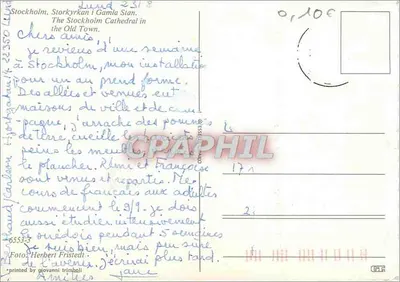 Stockholm, Storkyrkan i Gamla Stan.
The Stockholm Cathedral in
the Old Town.
Lund 23/8
0,10€
Chers amis,
je reviens d'une semaine
à Stockholm, mon installation
pour un an prend forme.
Des allées et venues ent
maisons de ville et de cam
pagne, j'arrache des pommes
de terre, cueille les
peins les meubles
le plancher. Rémi et Françoise
sont venus et repartis. Mes
cours de français aux adultes
commencent le 3/9. Je dois
aussi étudier intensivement
le suédois pendant 5 semaines
Je suis bien, mais peu sûre
de l'avenir. J'écrirai plus tard.
Amitiés
CPAPHIL
171
Foto: Herbert Fristedt
printed by giovanni trimboli